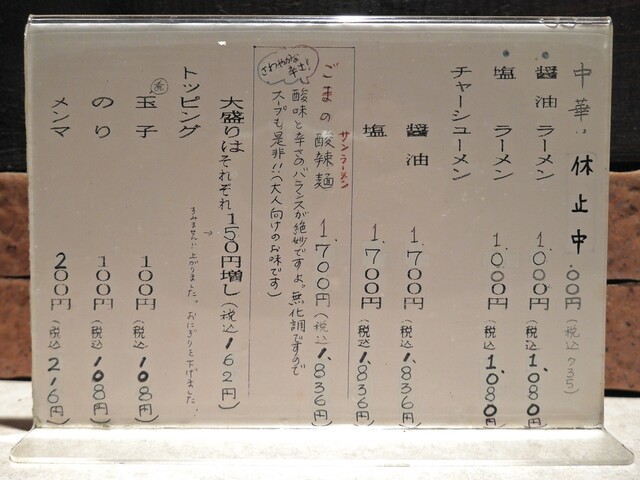 中華 休止中 00円(税込735)
醤油ラーメン 1.000円(税込1.080円)
塩ラーメン 1.000円(税込1.080円)
チャーシューメン
醤油 1.700円(税込1.836円)
塩 1.700円(税込1.836円)
サンラーメン
ごまの酸辣麺 1.700円(税込1.836円)
さわやかな辛さ!
酸味と辛さのバランスが絶妙ですよ。無化調ですので
スープも是非!!(大人向けのお味です)
大盛りはそれぞれ150円増し(税込162円)
すみません!上がりました。おにぎりと下げました。
トッピング
玉子 100円(税込108円)
のり 100円(税込108円)
メンマ 200円(税込216円)